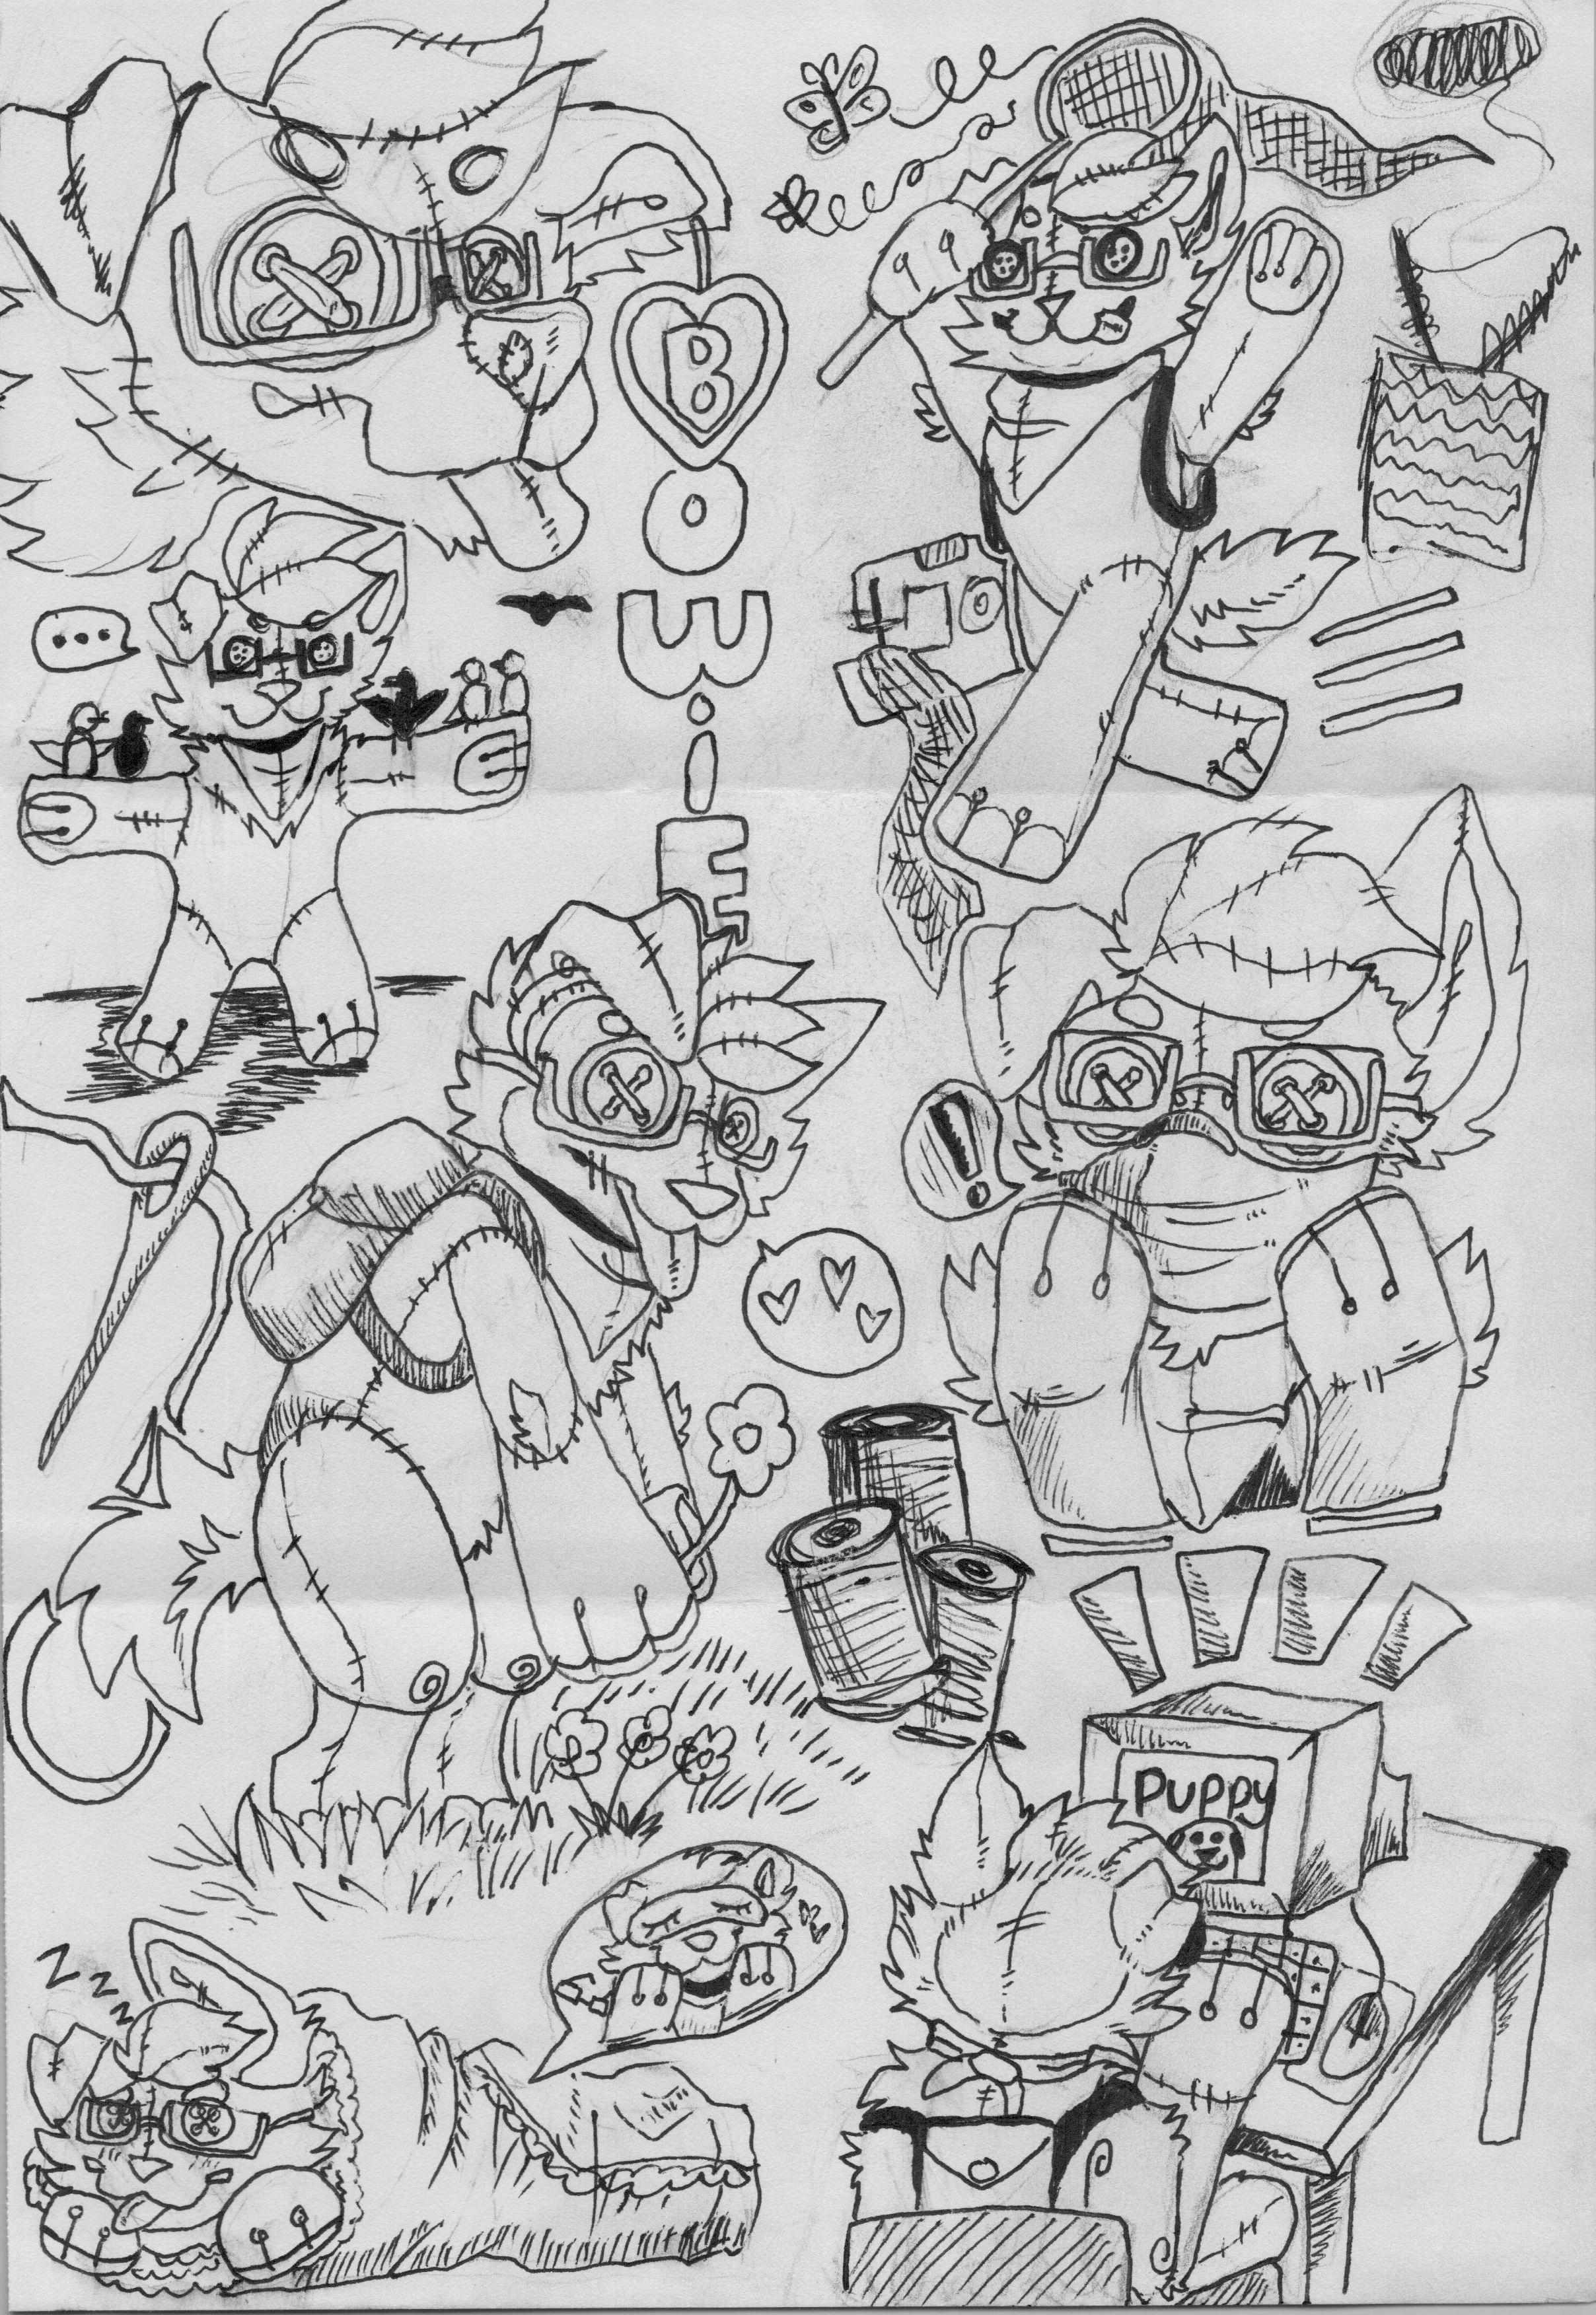 BOWiE
...
!
Puppy
Z z z